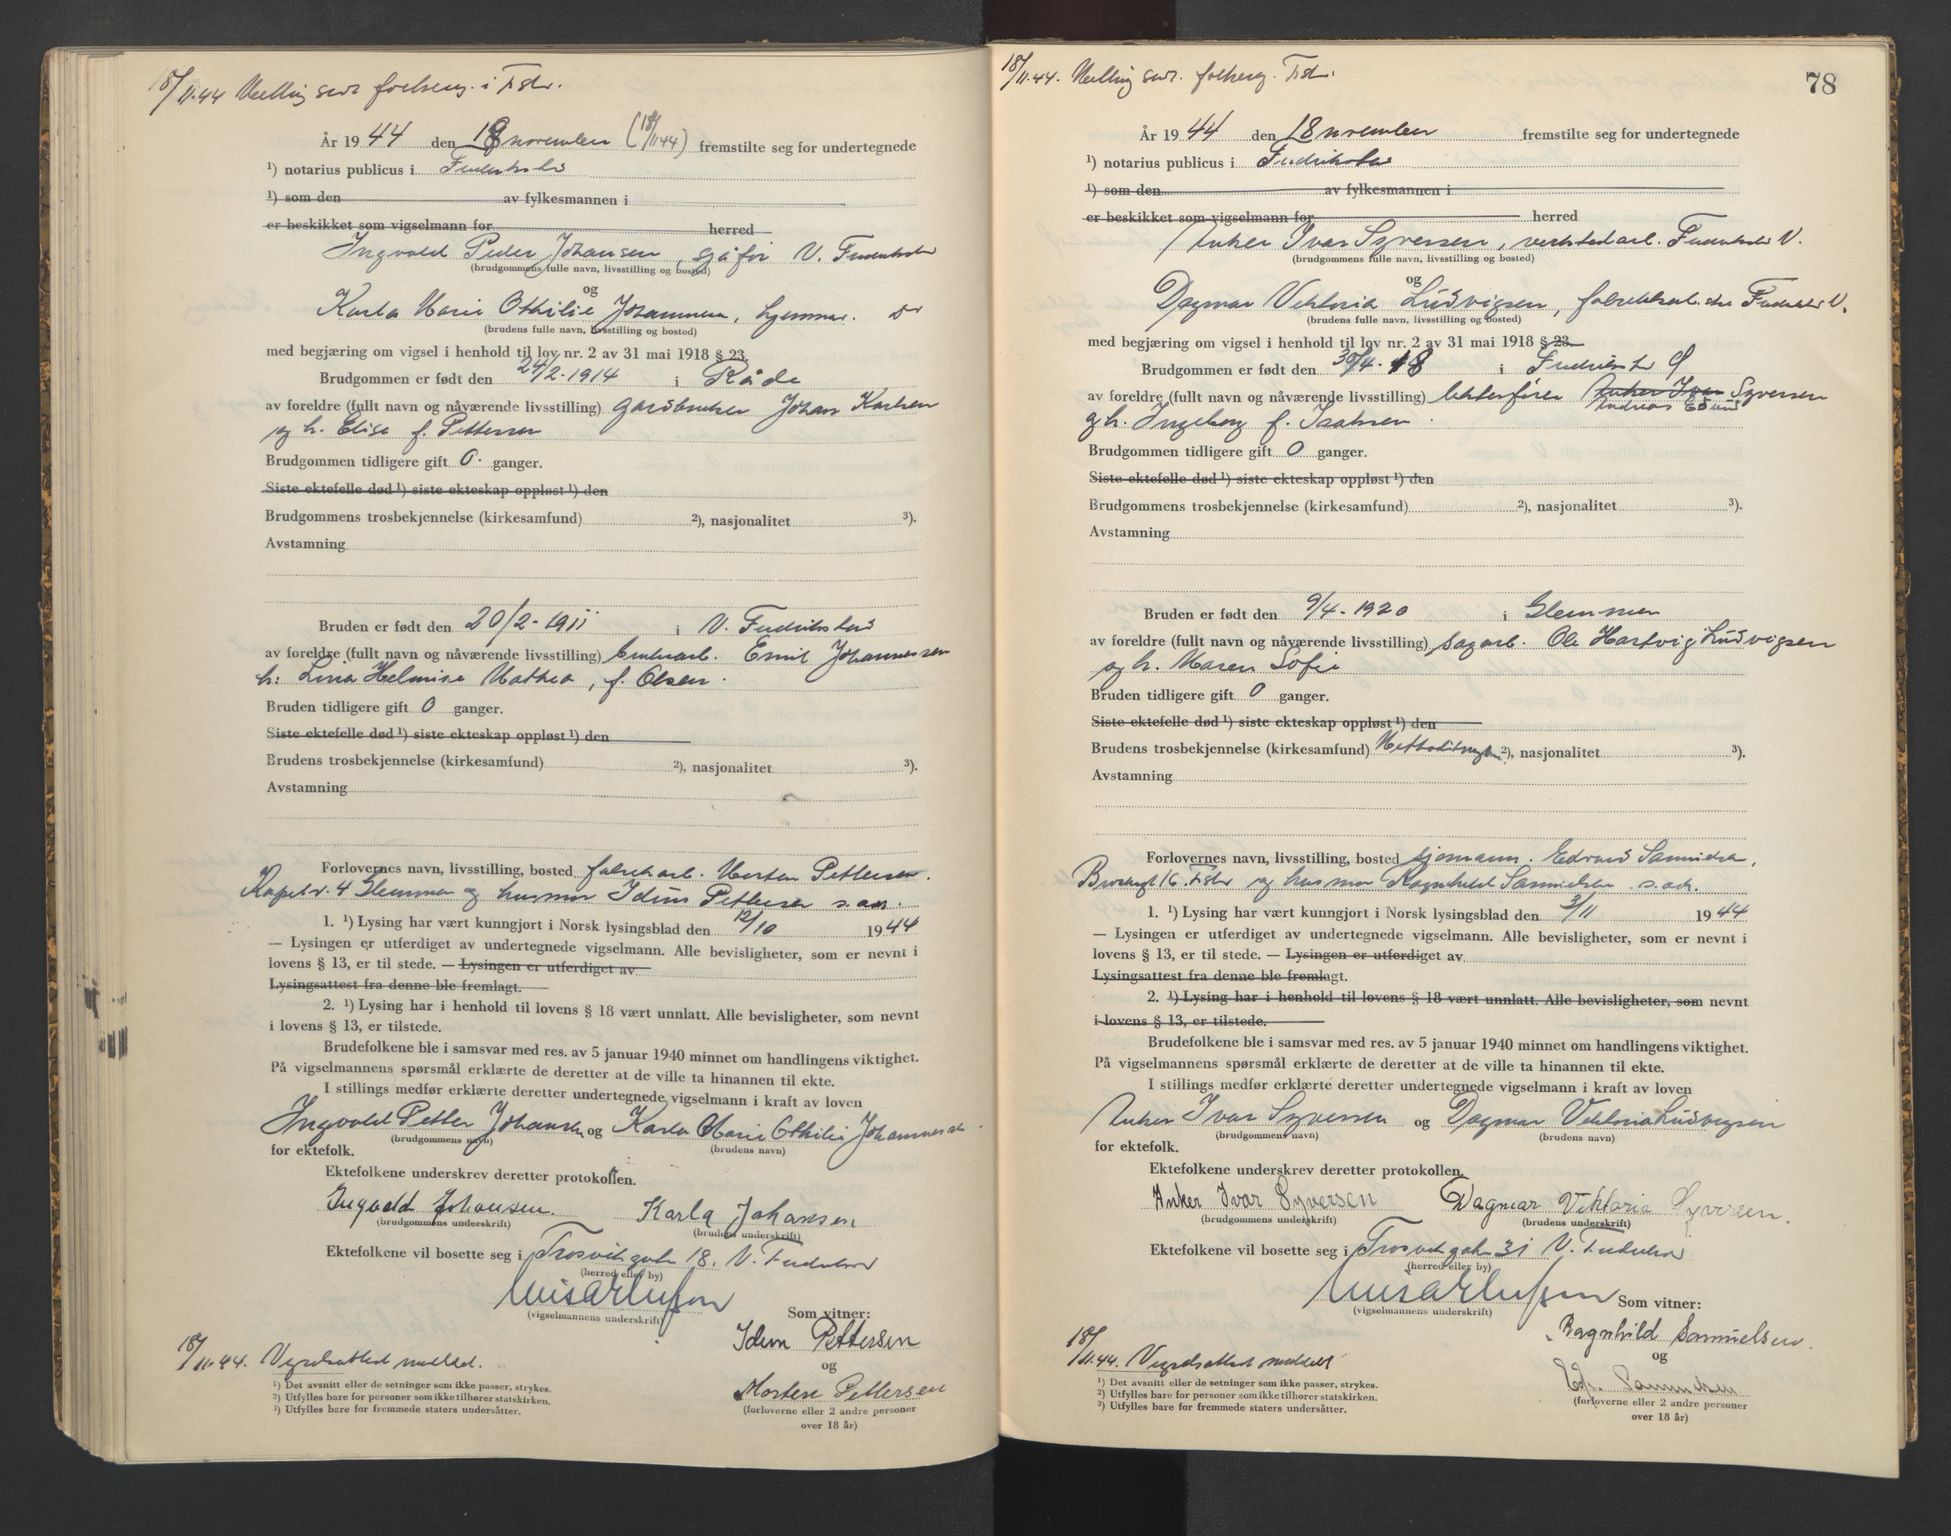 18/11.44 Melding sendt folkereg. i F.stad.
År 1944 den 18 november (18/11 44) fremstilte seg for undertegnede
¹) notarius publicus i Fredrikstad
¹) som den av fylkesmannen i
er beskikket som vigselmann for herred
Ingvald Peder Johansen, sjåfør V. Fredrikstad
(brudgommens fulle navn, livsstilling og bosted)
og
Karla Marie Othilie Johannessen, hjemmev.
(brudens fulle navn, livsstilling og bosted)
med begjæring om vigsel i henhold til lov nr. 2 av 31 mai 1918 § 23.
Brudgommen er født den 24/2-1914 i Råde
av foreldre (fullt navn og nåværende livsstilling) gårdbruker Johan Karlsen
og h. Elise f. Pettersen
Brudgommen tidligere gift 0. ganger.
Siste ektefelle død ¹) siste ekteskap oppløst ¹) den
Brudgommens trosbekjennelse (kirkesamfund) ²), nasjonalitet ³).
Avstamning
Bruden er født den 20/2-1911 i V. Fredrikstad
av foreldre (fullt navn og nåværende livsstilling) Emil Johannessen
h. Lina Helmine Mathea, f. Olsen.
Bruden tidligere gift 0 ganger.
Siste ektefelle død ¹) siste ekteskap oppløst ¹) den
Brudens trosbekjennelse (kirkesamfund) ²), nasjonalitet ³).
Avstamning
Forlovernes navn, livsstilling, bosted fabrikarb. Morten Pettersen.
Kapelv. 4 Glemmen og husmor Idun Pettersen s. adr.
1. ¹) Lysing har vært kunngjort i Norsk lysingsblad den 12/10 1944
— Lysingen er utferdiget av undertegnede vigselmann. Alle bevisligheter, som er nevnt i
lovens § 13, er til stede. — Lysingen er utferdiget av
Lysingsattest fra denne ble fremlagt.
2. ¹) Lysing har i henhold til lovens § 18 vært unnlatt. Alle bevisligheter, som nevnt
i lovens § 13, er tilstede.
Brudefolkene ble i samsvar med res. av 5 januar 1940 minnet om handlingens viktighet.
På vigselmannens spørsmål erklærte de deretter at de ville ta hinannen til ekte.
I stillings medfør erklærte deretter undertegnede vigselmann i kraft av loven
Ingvald Petter Johansen og Karla Marie Othilie Johannessen
(brudgommens navn) (brudens navn)
for ektefolk.
Ektefolkene underskrev deretter protokollen.
Ingvald Johansen. Karla Johansen
(brudgommens underskrift) (brudens underskrift)
Ektefolkene vil bosette seg i Trosvikgata 18. V. Fredrikstad
(herred eller by)
(vigselmannens underskrift) Som vitner:
Idun Pettersen
18/11.44. Vigselsattest meddelt. og
Morten Pettersen
¹) Det avsnitt eller de setninger som ikke passer, strykes.
²) Utfylles bare for personer som ikke tilhører statskirken.
³) Utfylles bare for fremmede staters undersåtter.
(forloverne eller 2 andre personer
over 18 år)
18/11.44. Melding sendt folkereg. F.stad.
78
År 1944 den 18 november fremstilte seg for undertegnede
¹) notarius publicus i Fredrikstad
¹) som den av fylkesmannen i
er beskikket som vigselmann for herred
Anker Ivar Syversen, verkstedarb. Fredrikstad V.
(brudgommens fulle navn, livsstilling og bosted)
og
Dagmar Viktoria Ludvigsen, fabrikkarb.ske Fredrikstad V.
(brudens fulle navn, livsstilling og bosted)
med begjæring om vigsel i henhold til lov nr. 2 av 31 mai 1918 § 23.
Brudgommen er født den 30/4-18 i Fredrikstad
av foreldre (fullt navn og nåværende livsstilling) lekterfører Anker Ivar Syversen
Andreas Edvin
og h. Ingeborg f. Isaksen.
Brudgommen tidligere gift 0 ganger.
Siste ektefelle død ¹) siste ekteskap oppløst ¹) den
Brudgommens trosbekjennelse (kirkesamfund) ²), nasjonalitet ³).
Avstamning
Bruden er født den 9/4-1920 i Glemmen
av foreldre (fullt navn og nåværende livsstilling) sagarb. Ole Hartvig Ludvigsen
og h. Maren Sofie
Bruden tidligere gift 0 ganger.
Siste ektefelle død ¹) siste ekteskap oppløst ¹) den
Brudens trosbekjennelse (kirkesamfund) ²), nasjonalitet ³).
Avstamning
Forlovernes navn, livsstilling, bosted sjømann. Edvard Samuelsen,
16. F.stad og husmor Ragnhild Samuelsen s. adr.
1. ¹) Lysing har vært kunngjort i Norsk lysingsblad den 3/11 1944
— Lysingen er utferdiget av undertegnede vigselmann. Alle bevisligheter, som er nevnt i
lovens § 13, er til stede. — Lysingen er utferdiget av
Lysingsattest fra denne ble fremlagt.
2. ¹) Lysing har i henhold til lovens § 18 vært unnlatt. Alle bevisligheter, som nevnt
i lovens § 13, er tilstede.
Brudefolkene ble i samsvar med res. av 5 januar 1940 minnet om handlingens viktighet.
På vigselmannens spørsmål erklærte de deretter at de ville ta hinannen til ekte.
I stillings medfør erklærte deretter undertegnede vigselmann i kraft av loven
Anker Ivar Syversen og Dagmar Viktoria Ludvigsen
(brudgommens navn) (brudens navn)
for ektefolk.
Ektefolkene underskrev deretter protokollen.
Anker Ivar Syversen Dagmar Viktoria Syversen.
(brudgommens underskrift) (brudens underskrift)
Ektefolkene vil bosette seg i Trosvikgata 31 V. Fredrikstad
(herred eller by)
(vigselmannens underskrift) Som vitner:
Ragnhild Samuelsen.
18/11.44. Vigselsattest meddelt og
Edv. Samuelsen
¹) Det avsnitt eller de setninger som ikke passer, strykes.
²) Utfylles bare for personer som ikke tilhører statskirken.
³) Utfylles bare for fremmede staters undersåtter.
(forloverne eller 2 andre personer
over 18 år)